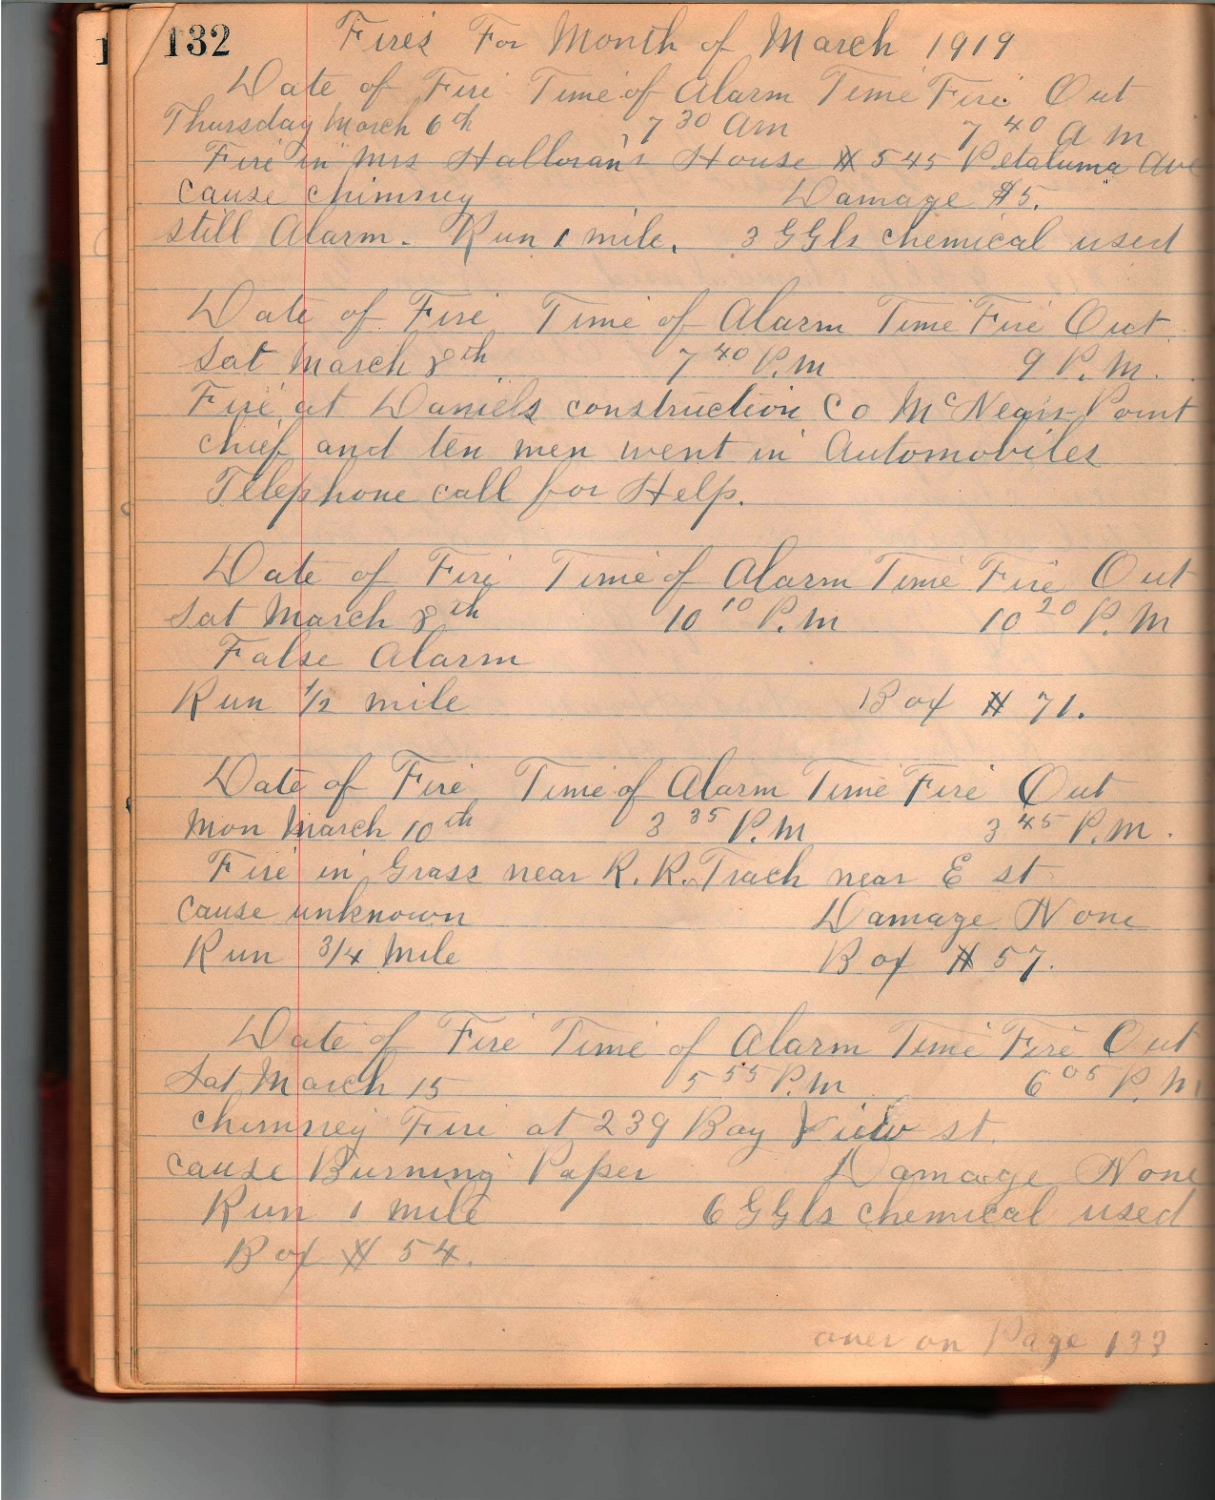 132 Fires For Month of March 1919
Date of Fire Time of Alarm Time Fire Out
Thursday March 6th 7 30 Am 7 40 A m
Fire in Mrs Halloran's House # 545 Petaluma Ave
cause chimney Damage $5.
still Alarm. Run 1 mile. 3 GGls chemical used
Date of Fire Time of Alarm Time Fire Out
Sat March 8th 7 40 P.m 9 P.M.
Fire at Daniels construction Co McNears Point
chief and ten men went in Automobiles
Telephone call for Help.
Date of Fire Time of Alarm Time Fire Out
Sat March 8th 10 10 P.m 10 20 P.M
False Alarm
Run 1/2 mile Box # 71.
Date of Fire Time of Alarm Time Fire Out
Mon March 10th 3 35 P.M 3 45 P.M.
Fire in Grass near R.R. Track near E st
cause unknown Damage None
Run 3/4 Mile Box # 57.
Date of Fire Time of Alarm Time Fire Out
Sat March 15 5 55 P.m 6 05 P.M
chimney Fire at 239 Bay View st.
cause Burning Paper Damage None
Run 1 mile 6 GGls chemical used
Box # 54.
over on Page 133